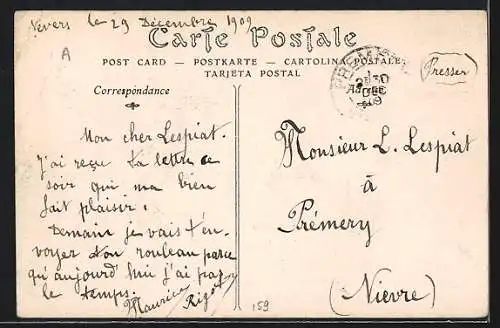 Nevers le 29 Décembre 1909
A
Carte Postale
POST CARD — POSTKARTE — CARTOLINA POSTALE
TARJETA POSTAL
Correspondance
PREMERY
30
DEC
09
(Presser)
Mon cher Lespiat.
J'ai reçu ta lettre ce
soir qui m'a bien
fait plaisir.
Demain je vais t'en-
voyer ton rouleau parce
qu'aujourd'hui j'ai pas
le temps.
Maurice Rigot
Monsieur L. Lespiat
à
Prémery
(Nièvre)
159